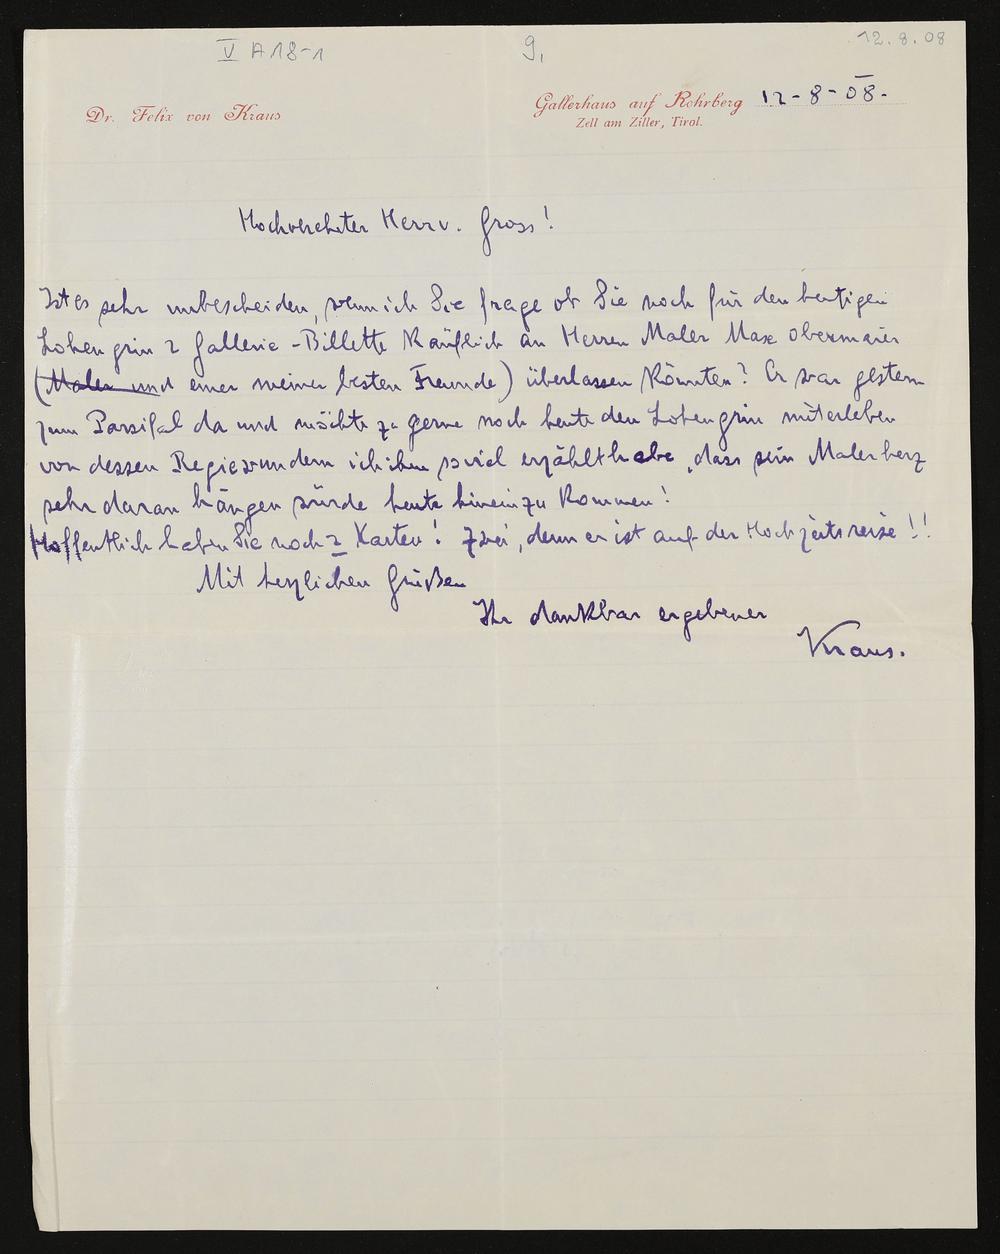 V A 18-1
9,
12.8.08
Dr. Felix von Kraus
Gallerhaus auf Rohrberg 12-8-08.
Zell am Ziller, Tirol.
Hochverehrter Herr v. Gross!
Ist es sehr unbescheiden, wenn ich Sie frage ob Sie noch für den heutigen
Lohengrin 2 Gallerie-Billette käuflich an Herren Maler Max Obermaier
(Maler und einer meiner besten Freunde) überlassen könnten? Er war gestern
zum Parsifal da und möchte zu gerne noch heute den Lohengrin miterleben
von dessen Regiewundern ich ihm soviel erzählt habe, dass sein Malerherz
sehr daran hängen würde heute hineinzukommen!
Hoffentlich haben Sie noch 2 Karten! Zwei, denn er ist auf der Hochzeitsreise!!
Mit herzlichen Grüßen
Ihr dankbar ergebener
Kraus.